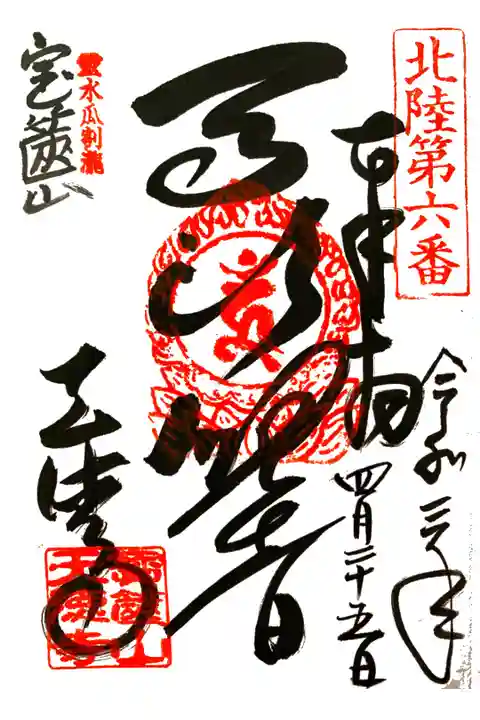 北陸第六番
令和三年
奉拝
四月二十五日
馬頭観音
霊水瓜割瀧
宝篋山
天徳寺